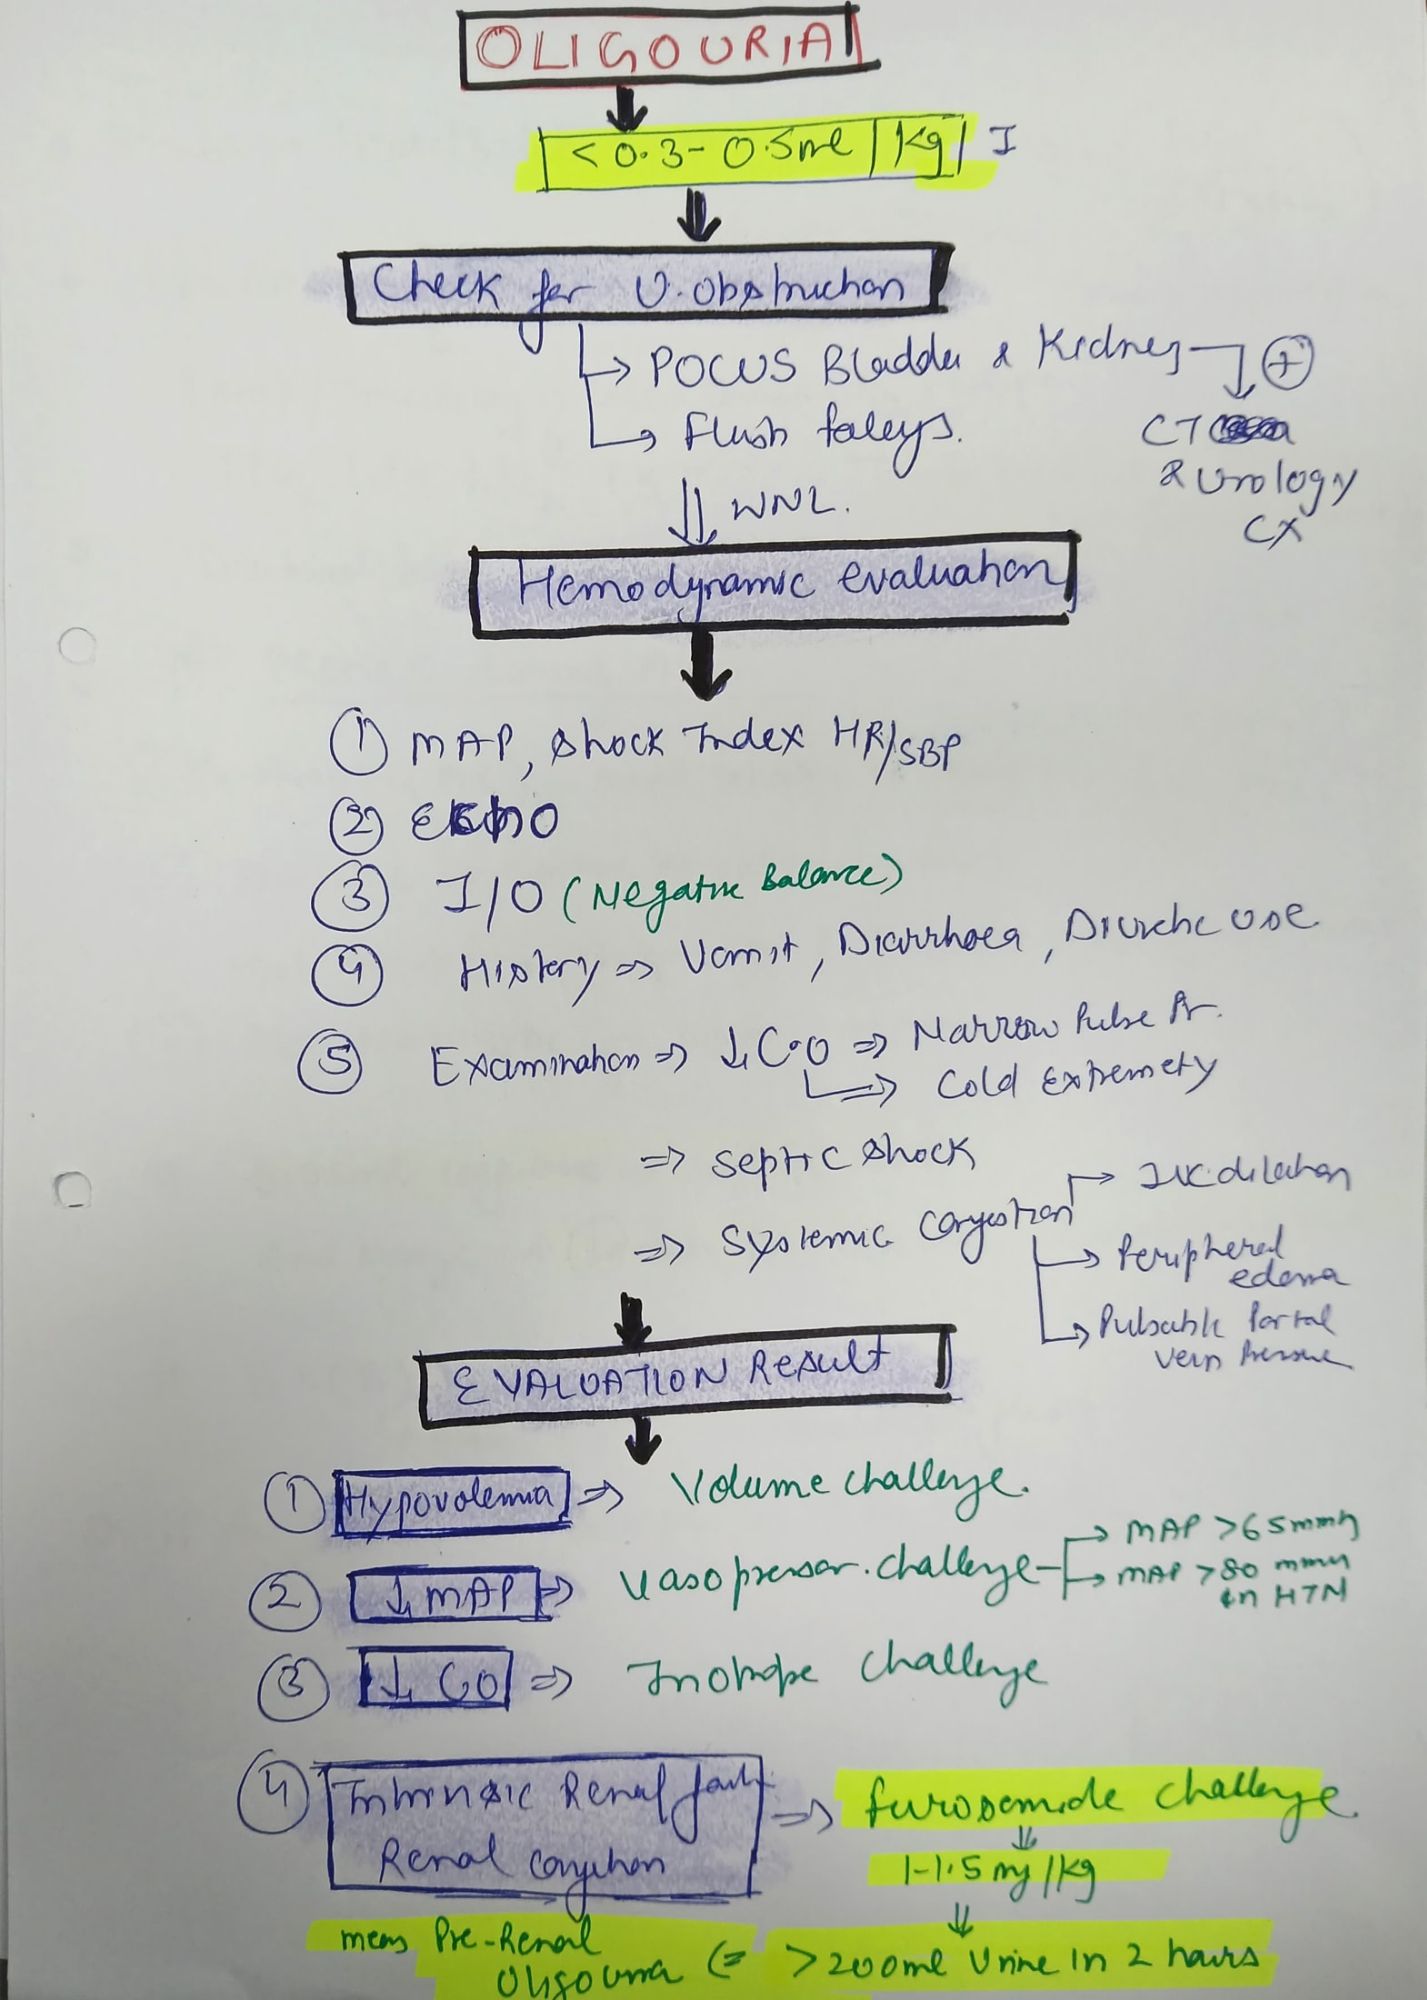 OLIGOURIA
< 0.3 - 0.5ml / kg / I
Check for U. Obstruction
→ POCUS Bladder & Kidney → ⊕
→ Flush foleys.
CT
& Urology
CX
⇓ WNL.
Hemodynamic evaluation
① MAP, Shock Index HR/SBP
② ECHO
③ I/O (Negative Balance)
④ History ⇒ Vomit, Diarrhoea, Diuretic use.
⑤ Examination ⇒ ↓ C.O ⇒ Narrow Pulse Pr.
⇒ Cold Extremety
⇒ Septic Shock
⇒ Systemic Congestion → IVC dilation
→ Peripheral
edema
→ Pulsatile Portal
vein Pressure
EVALUATION Result
① Hypovolemia ⇒ Volume challenge.
② ↓ MAP ⇒ Vasopressor. challenge → MAP >65mmHg
→ MAP >80 mmHg
in HTN
③ ↓ CO ⇒ Inotrope challenge
④ Intrinsic Renal fail.
Renal congestion
⇒ furosemide challenge.
⇓
1-1.5 mg/kg
⇓
means Pre-Renal
Oligouria ⇐ >200ml Urine in 2 hours